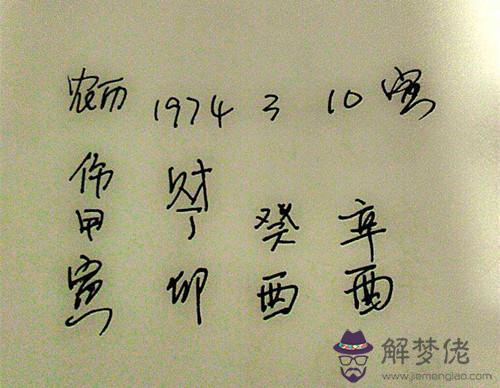 农历 1974 3 10
伤 财
甲 丁 癸 辛
寅 卯 酉 酉
解梦佬
www.jiemenglao.com